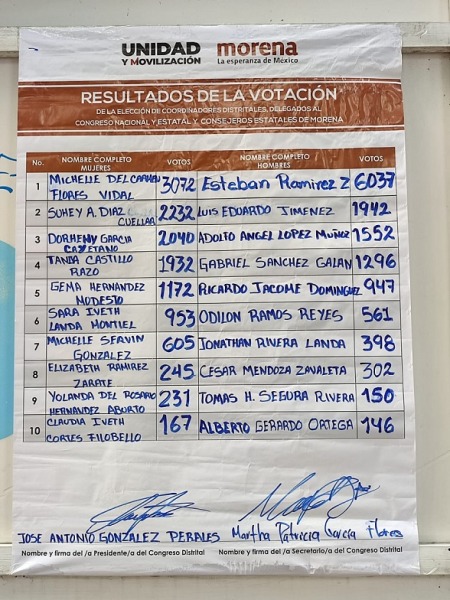 UNIDAD
Y MOVILIZACIÓN
morena
La esperanza de México
RESULTADOS DE LA VOTACIÓN
DE LA ELECCIÓN DE COORDINADORES DISTRITALES, DELEGADOS AL
CONGRESO NACIONAL Y ESTATAL Y CONSEJEROS ESTATALES DE MORENA
No. NOMBRE COMPLETO MUJERES VOTOS NOMBRE COMPLETO HOMBRES VOTOS
1 MICHELLE DEL CARMEN FLORES VIDAL 3072 Esteban Ramirez Z 6037
2 SUHEY A. DIAZ CUELLAR 2232 LUIS EDUARDO JIMENEZ 1942
3 DORHENY GARCIA CAYETANO 2040 ADOLFO ANGEL LOPEZ MUÑOZ 1552
4 TANIA CASTILLO RAZO 1932 GABRIEL SANCHEZ GALAN 1296
5 GEMA HERNANDEZ MODESTO 1172 RICARDO JACOME DOMINGUEZ 947
6 SARA IVETH LANDA MONTIEL 953 ODILON RAMOS REYES 561
7 MICHELLE SERVIN GONZALEZ 605 JONATHAN RIVERA LANDA 398
8 ELIZABETH RAMIREZ ZARATE 245 CESAR MENDOZA ZAVALETA 302
9 YOLANDA DEL ROSARIO HERNANDEZ ABURTO 231 TOMAS H. SEGURA RIVERA 150
10 CLAUDIA IVETH CORTES FILOBELLO 167 ALBERTO GERARDO ORTEGA 146
JOSE ANTONIO GONZALEZ PERALES Martha Patricia Garcia Flores
Nombre y firma del /a Presidente/a del Congreso Distrital Nombre y firma del /a Secretario/a del Congreso Distrital